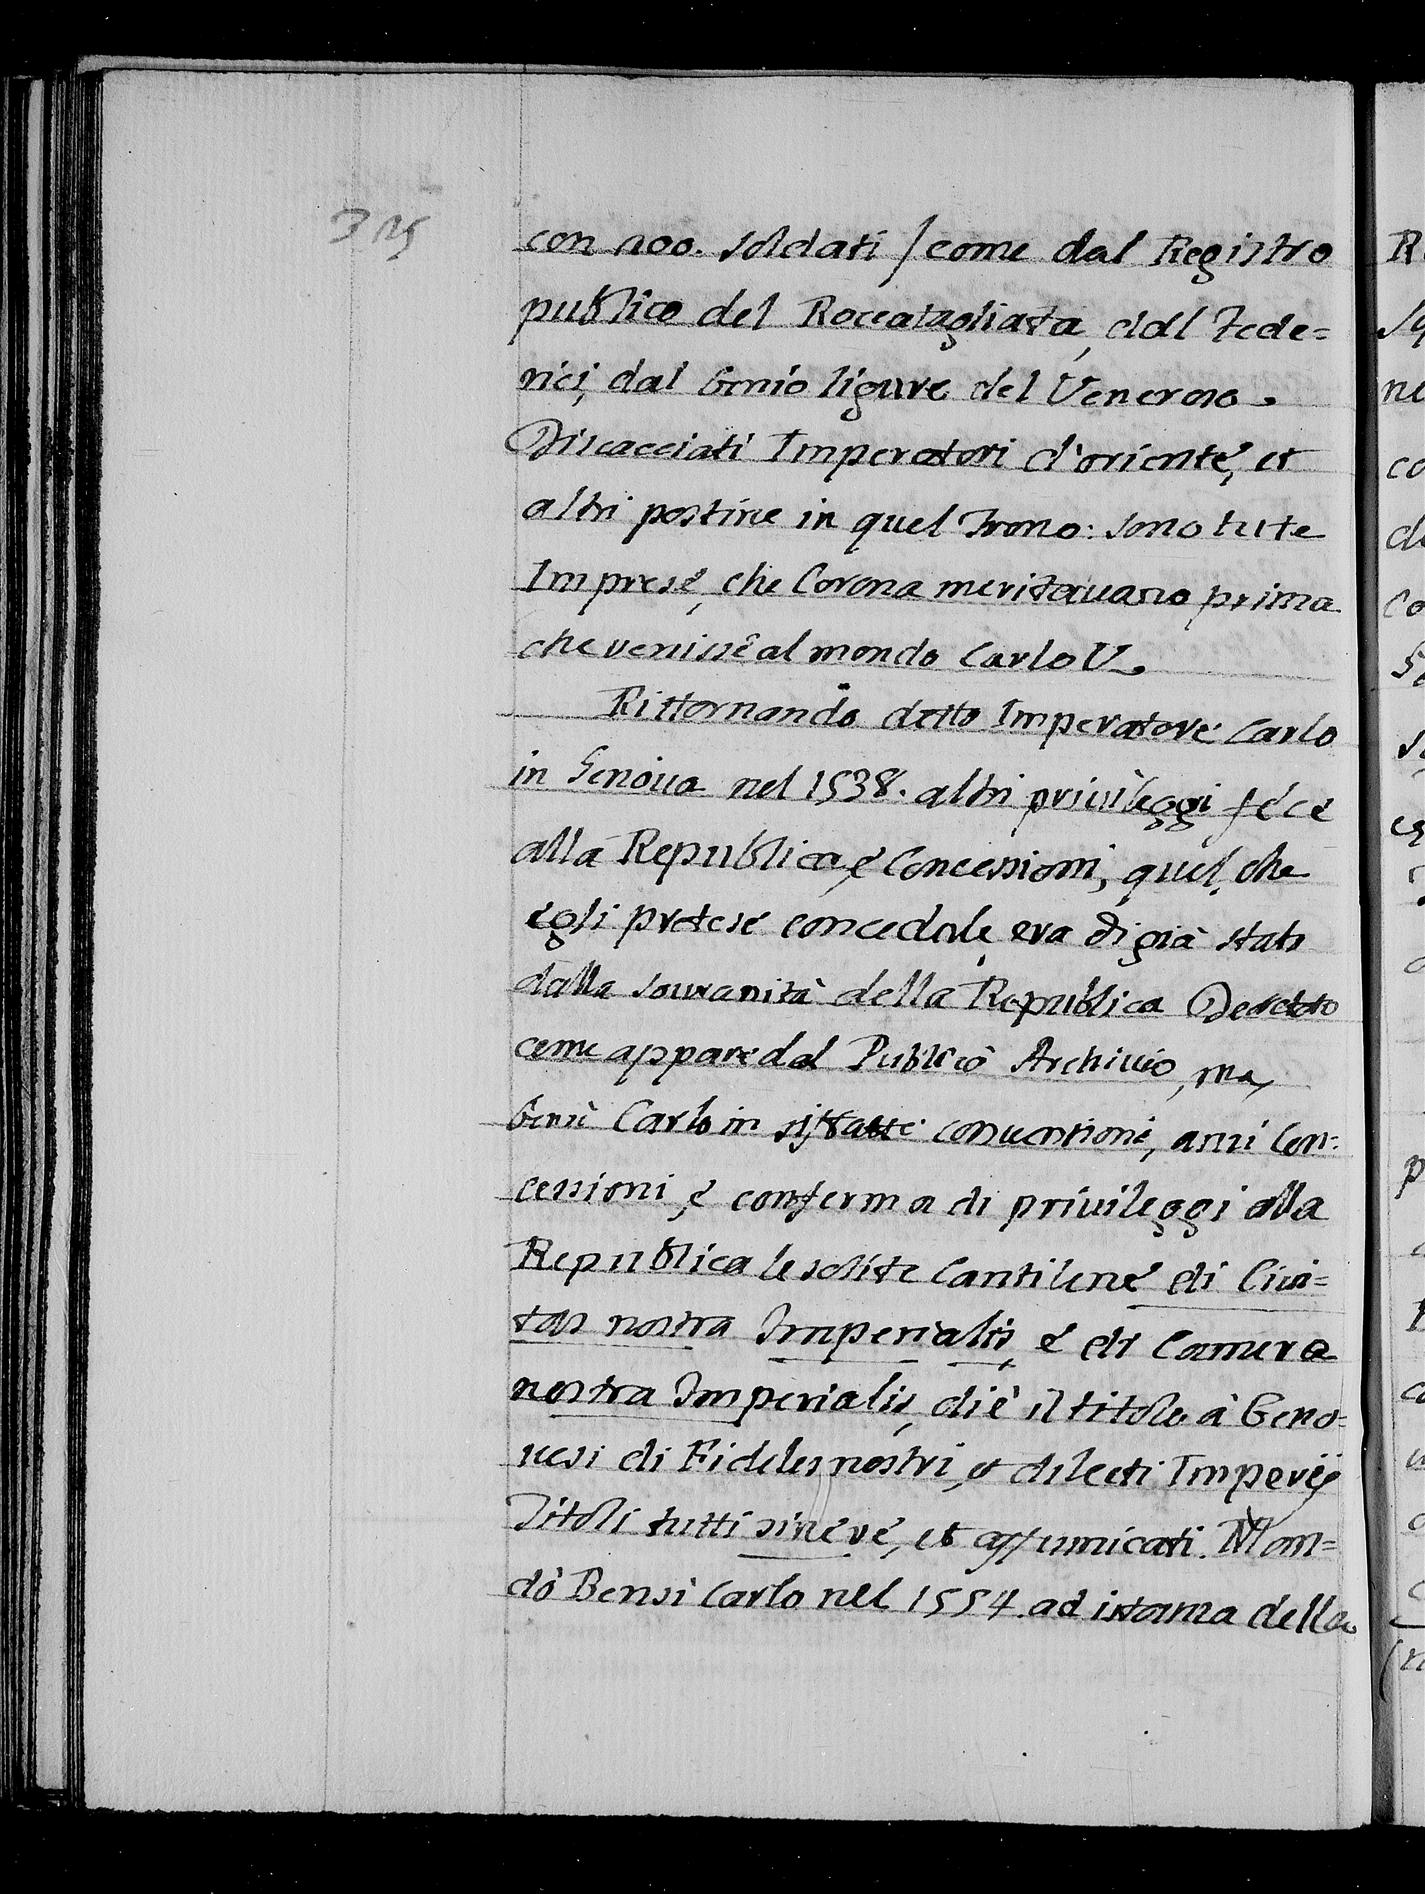 325
con 100. soldati / come dal Registro
publico del Roccatagliata, dal Fede=
rici, dal Genio ligure del Veneroso.
Discacciati Imperatori d'oriente, et
altri postine in quel Trono: sono tutte
Imprese, che Corona meritauano prima
che venisse al mondo Carlo V.
Rittornando detto Imperatore Carlo
in Genoua nel 1538. altri priuileggi fece
alla Republica, e Concessioni, quel, che
egli pretese concederle, era di già stato
dalla souranità della Republica Decretato
come appare dal Publico Archiuio, ma
bensì Carlo in sifatte conuentioni, anzi Con=
cessioni, e conferma di priuileggi alla
Republica le solite Cantilene di Ciui=
tas nostra Imperialis, e di Camera
nostra Imperialis, diè il titolo à Geno=
uesi di Fideles nostri, et dilecti Imperij
Titoli tutti sine re, et affumicati. Man=
dò Bensì Carlo nel 1554. ad istanza della